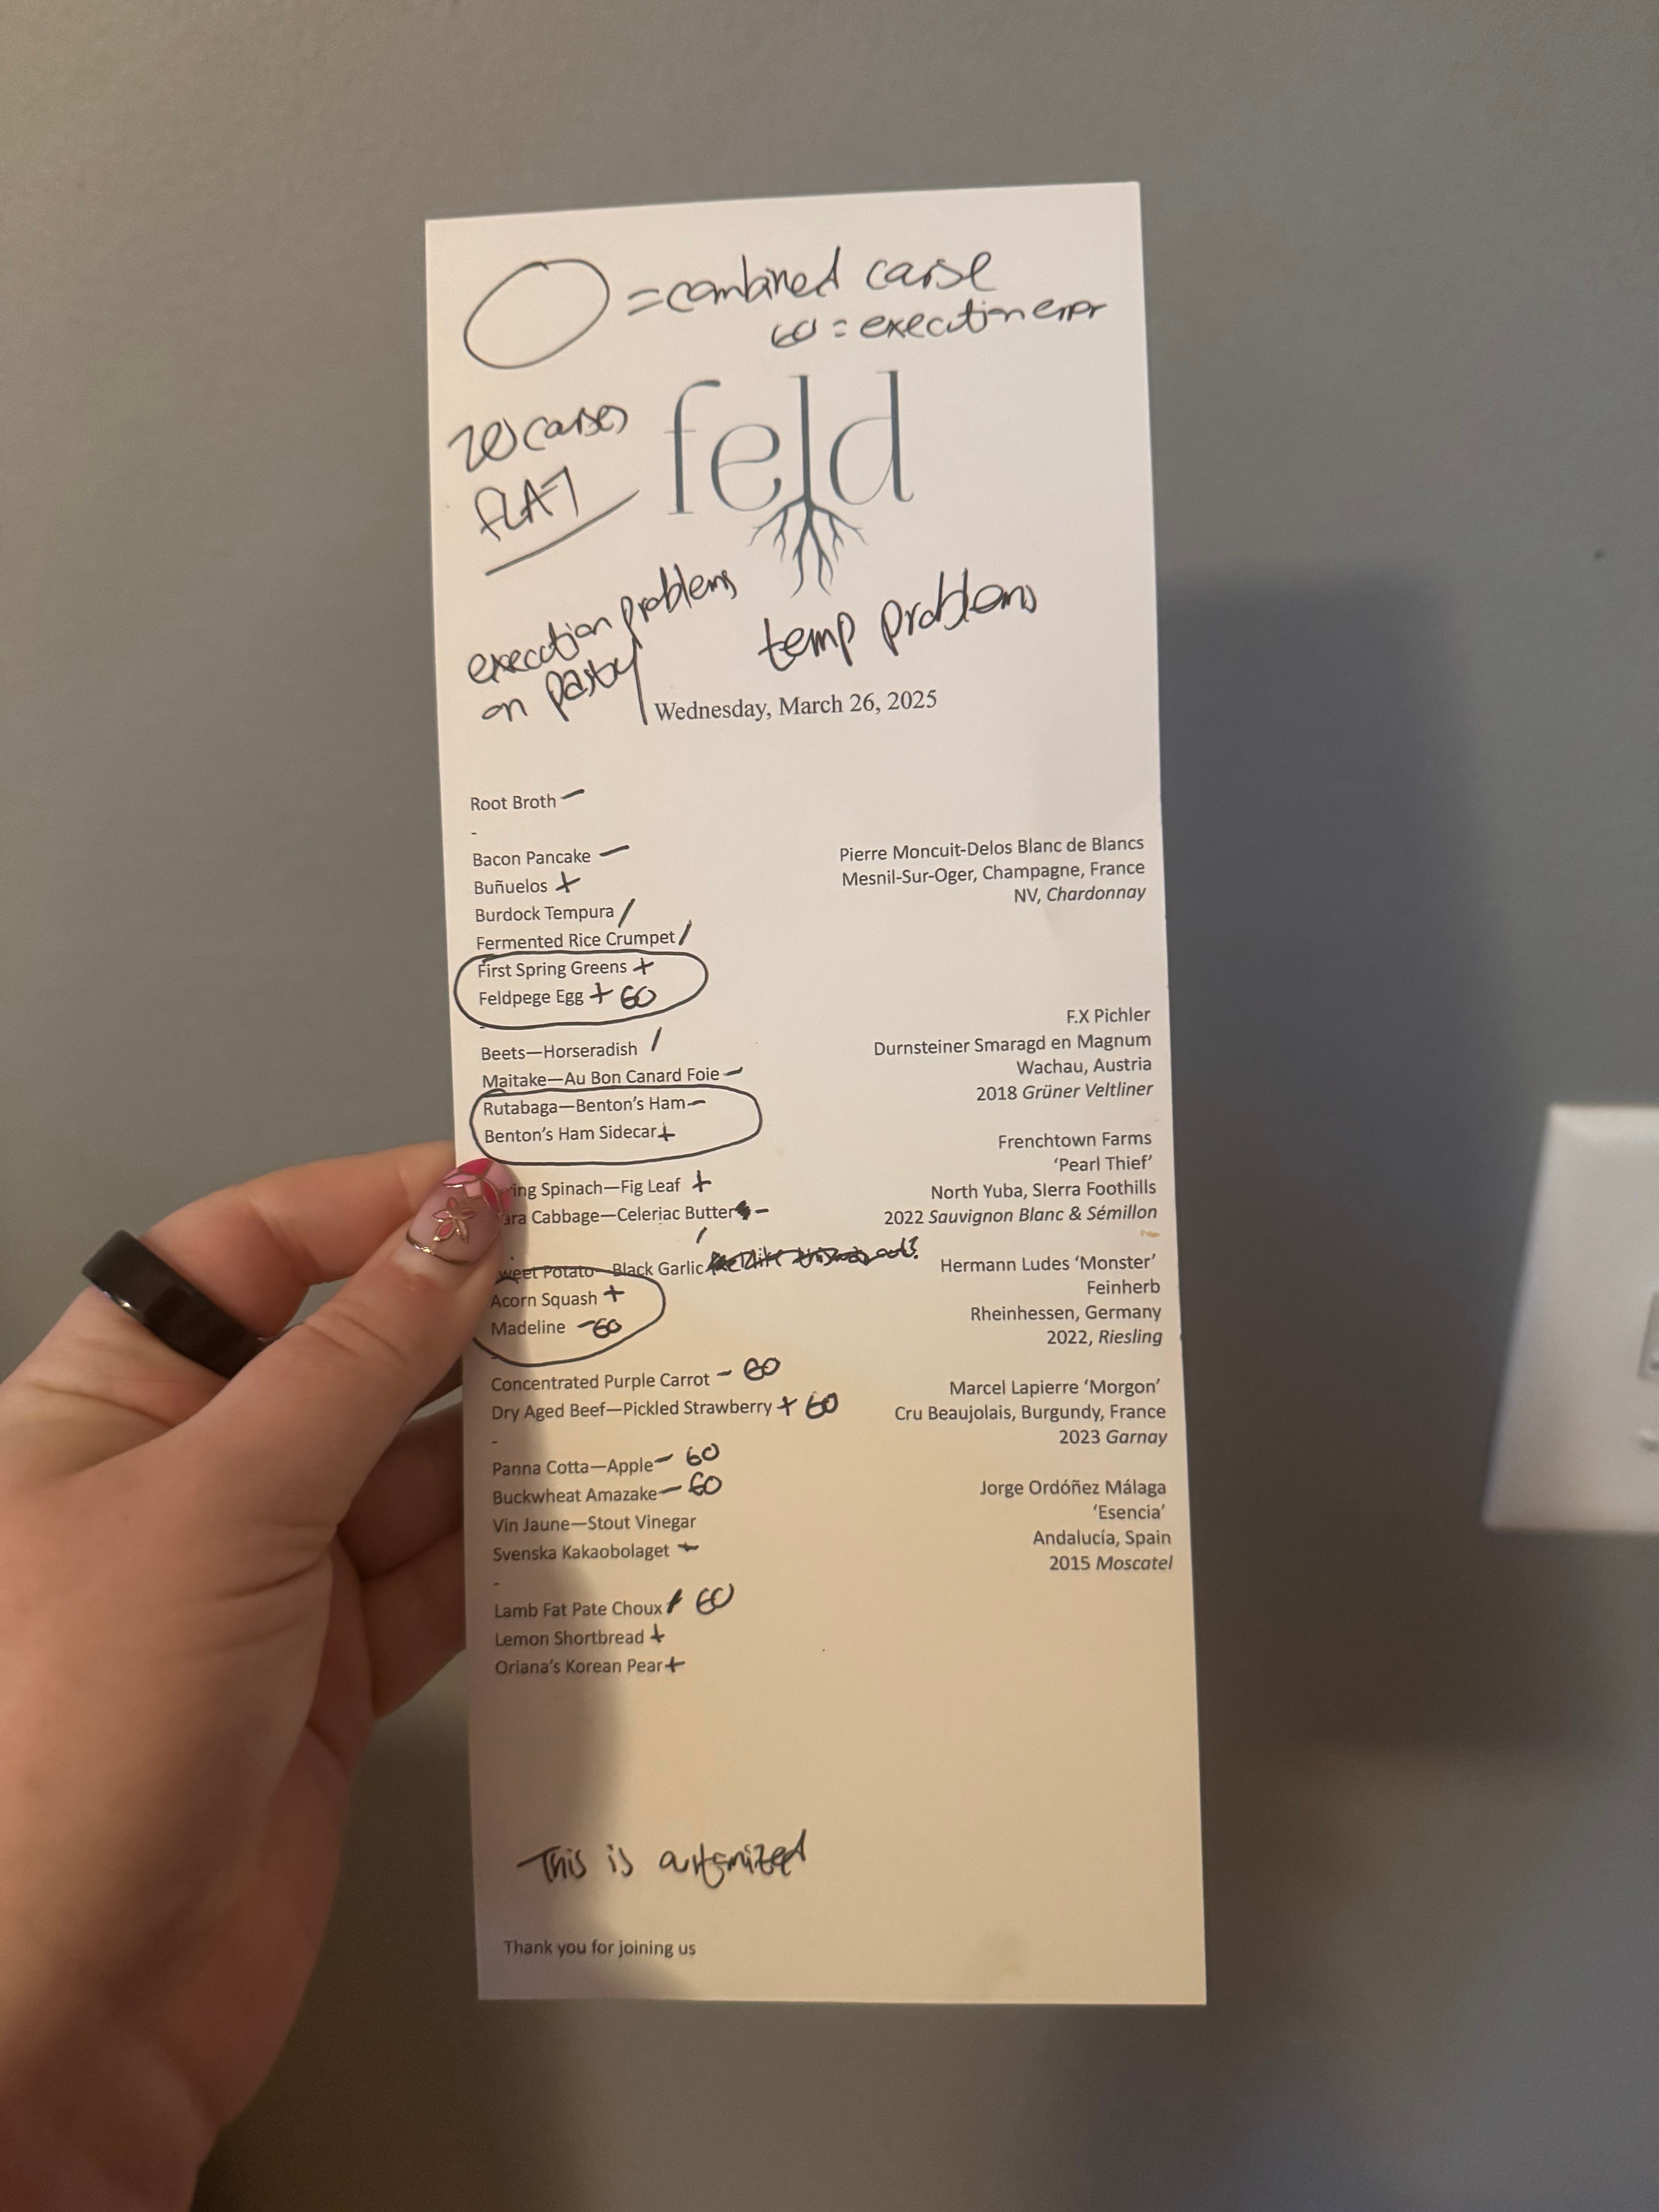 = combined carse
60 = execution error
20 carses
FLAT
feld
execution problems
on pastry
temp problems
Wednesday, March 26, 2025
Root Broth –
-
Bacon Pancake –
Buñuelos +
Burdock Tempura /
Fermented Rice Crumpet /
First Spring Greens +
Feldpege Egg + 60
-
Beets—Horseradish /
Maitake—Au Bon Canard Foie –
Rutabaga—Benton's Ham –
Benton's Ham Sidecar +
ing Spinach—Fig Leaf +
ara Cabbage—Celeriac Butter –
/
weet Potato—Black Garlic
Acorn Squash +
Madeline – 60
-
Concentrated Purple Carrot – 60
Dry Aged Beef—Pickled Strawberry + 60
-
Panna Cotta—Apple – 60
Buckwheat Amazake – 60
Vin Jaune—Stout Vinegar
Svenska Kakaobolaget
-
Lamb Fat Pate Choux 60
Lemon Shortbread +
Oriana's Korean Pear +
Pierre Moncuit-Delos Blanc de Blancs
Mesnil-Sur-Oger, Champagne, France
NV, Chardonnay
F.X Pichler
Durnsteiner Smaragd en Magnum
Wachau, Austria
2018 Grüner Veltliner
Frenchtown Farms
'Pearl Thief'
North Yuba, SIerra Foothills
2022 Sauvignon Blanc & Sémillon
Hermann Ludes 'Monster'
Feinherb
Rheinhessen, Germany
2022, Riesling
Marcel Lapierre 'Morgon'
Cru Beaujolais, Burgundy, France
2023 Gamay
Jorge Ordóñez Málaga
'Esencia'
Andalucía, Spain
2015 Moscatel
This is
Thank you for joining us